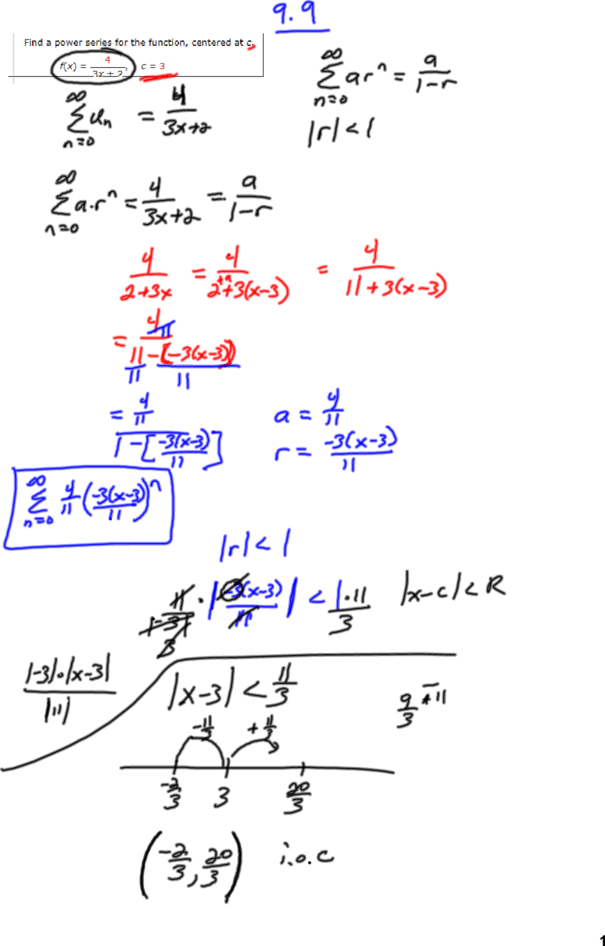 9.9
Find a power series for the function, centered at c.
f(x) = 4/(3x + 2), c = 3
∞ Σ n=0 ar^n = a/(1-r)
|r| < 1
∞ Σ n=0 a_n = 4/(3x+2)
∞ Σ n=0 a·r^n = 4/(3x+2) = a/(1-r)
4/(2+3x) = 4/(2+9+3(x-3)) = 4/(11+3(x-3))
= (4/11)/(11/11 - [-3(x-3)]/11)
= (4/11)/(1-[-3(x-3)/11])
a = 4/11
r = -3(x-3)/11
∞ Σ n=0 4/11 (-3(x-3)/11)^n
|r| < 1
11/|-3| · |-3(x-3)/11| < 1·11/3
3
|x-c| < R
|-3|·|x-3|/|11|
|x-3| < 11/3
9/3 +- 11
-11/3 +11/3
-2/3 3 20/3
(-2/3, 20/3) i.o.c
1